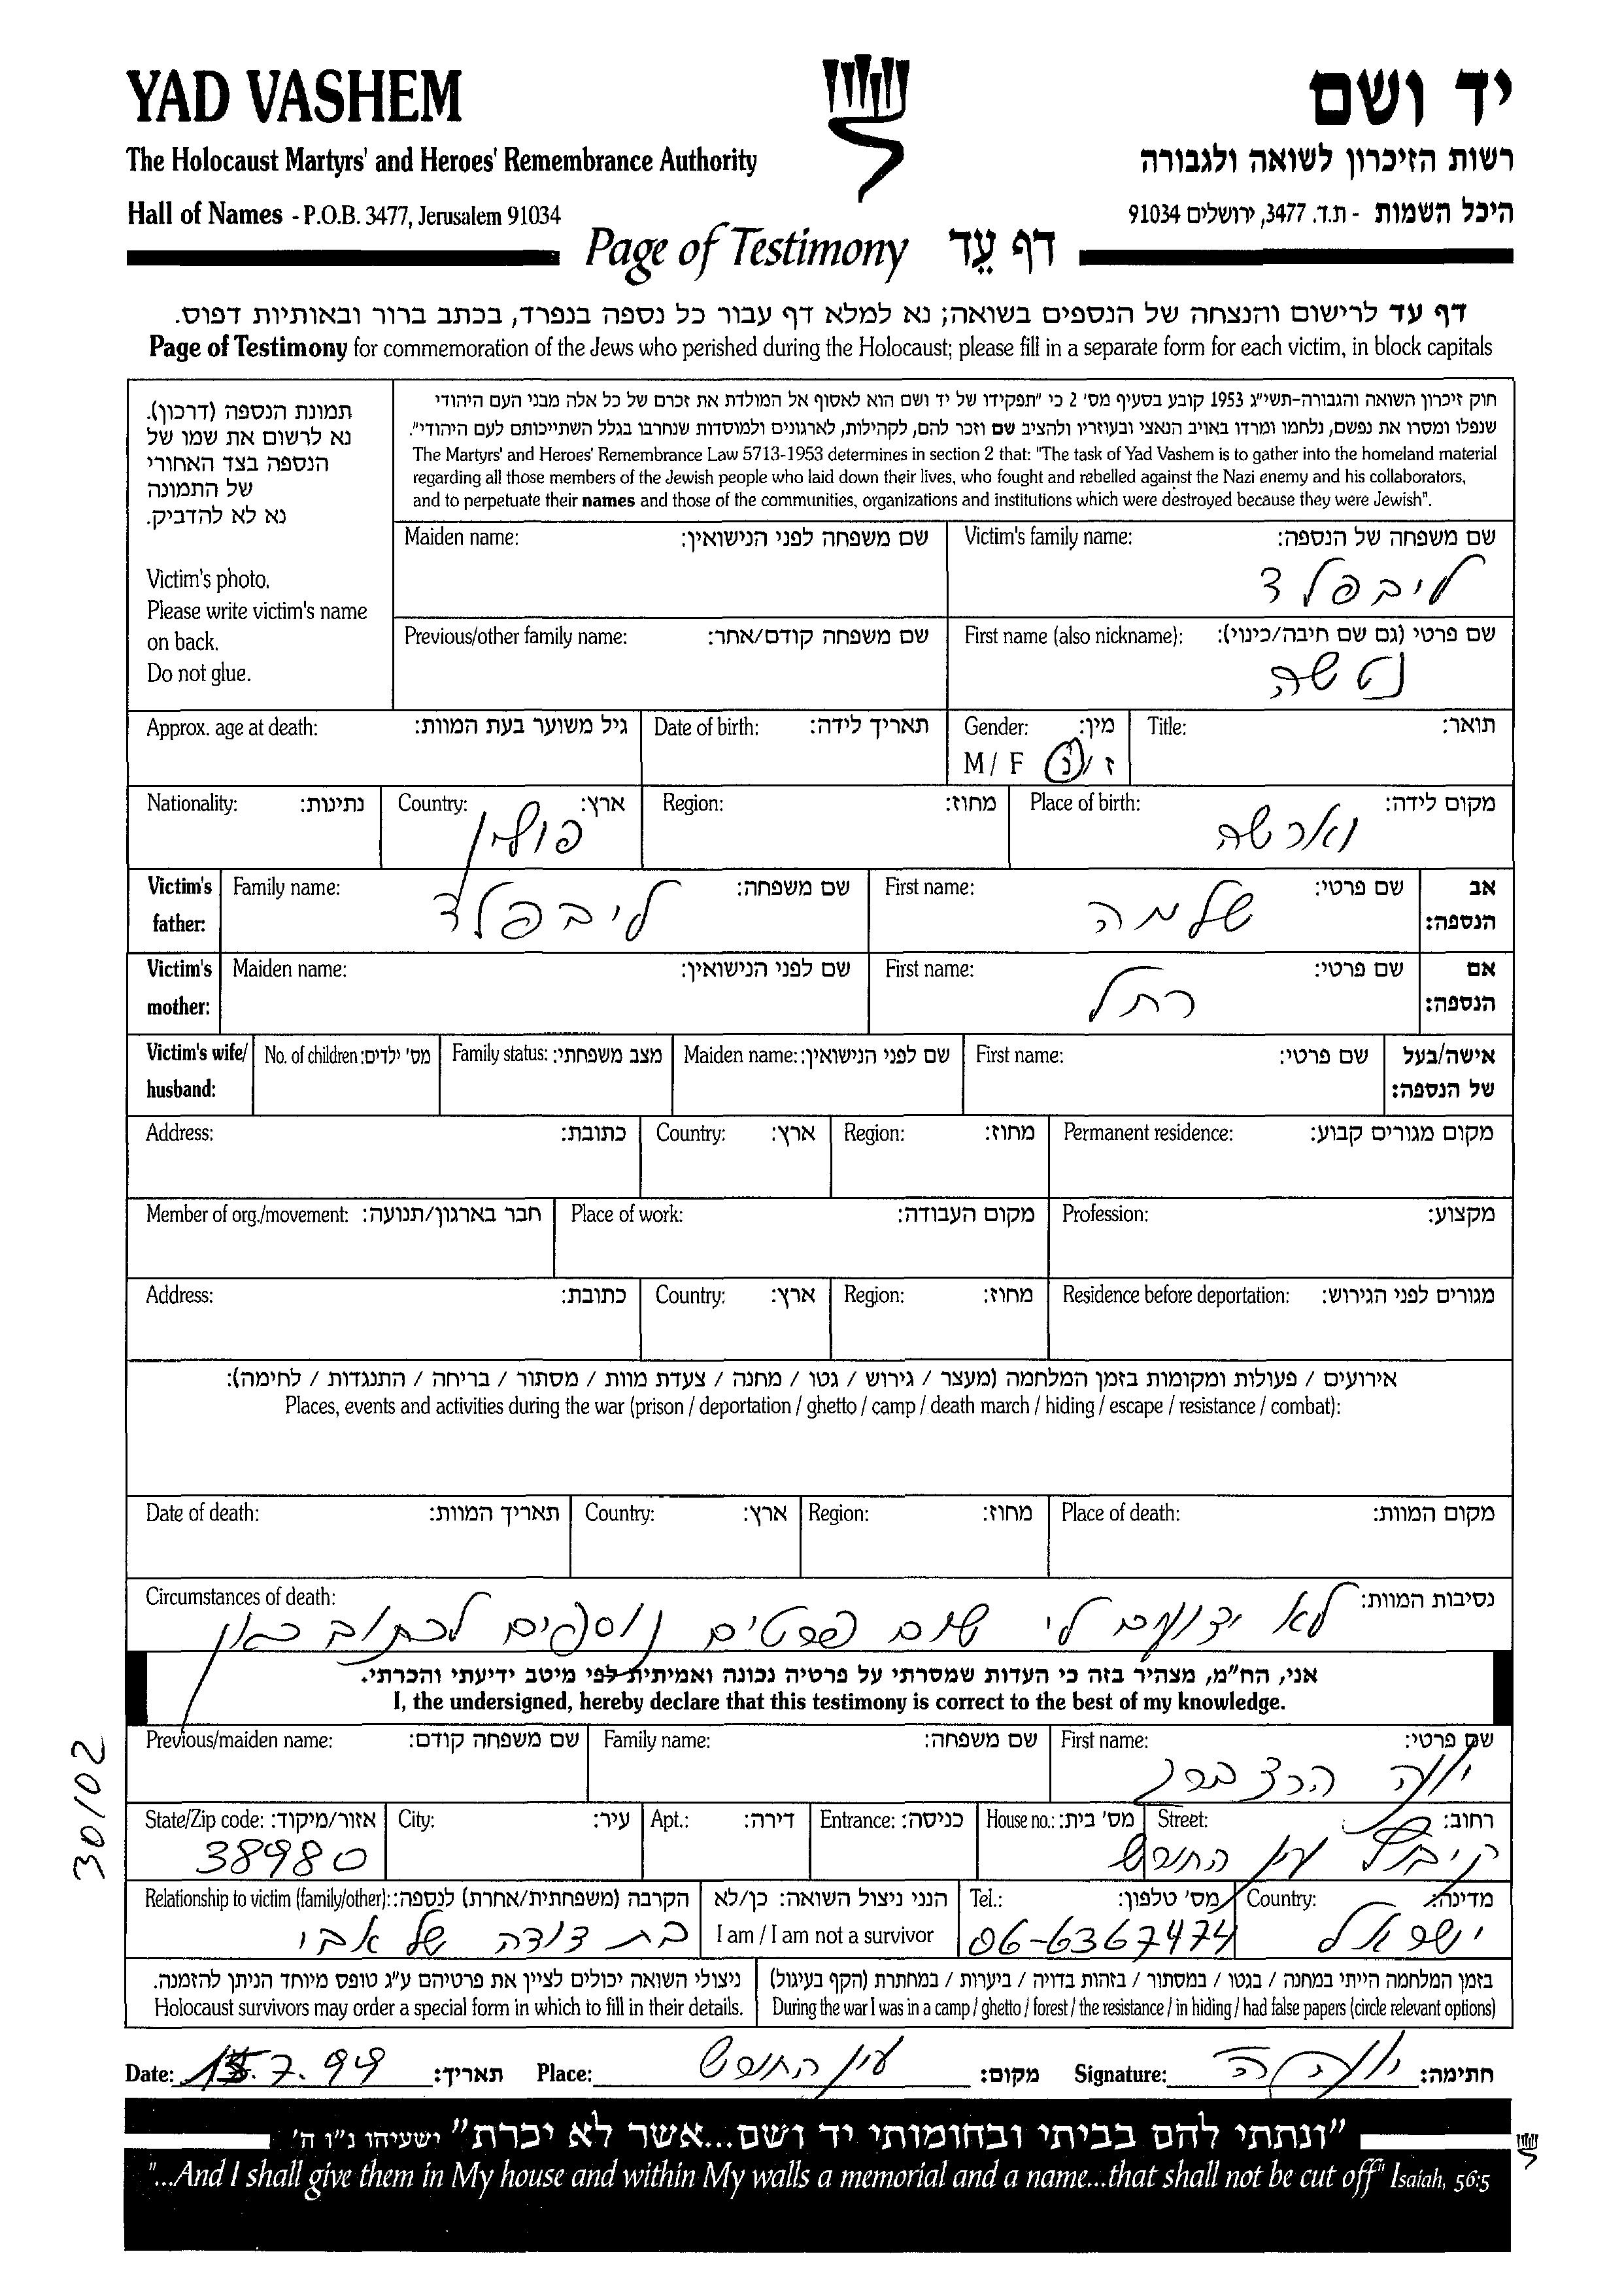 YAD VASHEM
יד ושם
The Holocaust Martyrs' and Heroes' Remembrance Authority
רשות הזיכרון לשואה ולגבורה
Hall of Names - P.O.B. 3477, Jerusalem 91034
היכל השמות - ת.ד. 3477, ירושלים 91034
Page of Testimony דף עֵד
דף עד לרישום והנצחה של הנספים בשואה; נא למלא דף עבור כל נספה בנפרד, בכתב ברור ובאותיות דפוס.
Page of Testimony for commemoration of the Jews who perished during the Holocaust; please fill in a separate form for each victim, in block capitals
תמונת הנספה (דרכון).
נא לרשום את שמו של
הנספה בצד האחורי
של התמונה
נא לא להדביק.
Victim's photo.
Please write victim's name
on back.
Do not glue.
חוק זיכרון השואה והגבורה-תשי"ג 1953 קובע בסעיף מס' 2 כי "תפקידו של יד ושם הוא לאסוף אל המולדת את זכרם של כל אלה מבני העם היהודי
שנפלו ומסרו את נפשם, נלחמו ומרדו באויב הנאצי ובעוזריו ולהציב שם וזכר להם, לקהילות, לארגונים ולמוסדות שנחרבו בגלל השתייכותם לעם היהודי".
The Martyrs' and Heroes' Remembrance Law 5713-1953 determines in section 2 that: "The task of Yad Vashem is to gather into the homeland material
regarding all those members of the Jewish people who laid down their lives, who fought and rebelled against the Nazi enemy and his collaborators,
and to perpetuate their names and those of the communities, organizations and institutions which were destroyed because they were Jewish".
Victim's family name: שם משפחה של הנספה:
ליבפלד
Maiden name: שם משפחה לפני הנישואין:
First name (also nickname): שם פרטי (גם שם חיבה/כינוי):
נטשה
Previous/other family name: שם משפחה קודם/אחר:
Title: תואר:
Gender: מין:
M / F ז / נ
Date of birth: תאריך לידה:
Approx. age at death: גיל משוער בעת המוות:
Place of birth: מקום לידה:
וארשה
Region: מחוז:
Country: ארץ:
פולין
Nationality: נתינות:
Victim's father: אב הנספה:
First name: שם פרטי:
שלמה
Family name: שם משפחה:
ליבפלד
Victim's mother: אם הנספה:
First name: שם פרטי:
רחל
Maiden name: שם לפני הנישואין:
Victim's wife/ husband: אישה/בעל של הנספה:
First name: שם פרטי:
Maiden name: שם לפני הנישואין:
Family status: מצב משפחתי:
No. of children: מס' ילדים:
Permanent residence: מקום מגורים קבוע:
Region: מחוז:
Country: ארץ:
Address: כתובת:
Profession: מקצוע:
Place of work: מקום העבודה:
Member of org./movement: חבר בארגון/תנועה:
Residence before deportation: מגורים לפני הגירוש:
Region: מחוז:
Country: ארץ:
Address: כתובת:
אירועים / פעולות ומקומות בזמן המלחמה (מעצר / גירוש / גטו / מחנה / צעדת מוות / מסתור / בריחה / התנגדות / לחימה):
Places, events and activities during the war (prison / deportation / ghetto / camp / death march / hiding / escape / resistance / combat):
Place of death: מקום המוות:
Region: מחוז:
Country: ארץ:
Date of death: תאריך המוות:
Circumstances of death: נסיבות המוות:
לא ידועים לי שום פרטים נוספים לכתוב כאן
אני, הח"מ, מצהיר בזה כי העדות שמסרתי על פרטיה נכונה ואמיתית לפי מיטב ידיעתי והכרתי.
I, the undersigned, hereby declare that this testimony is correct to the best of my knowledge.
First name: שם פרטי:
הרצברג
Family name: שם משפחה:
Previous/maiden name: שם משפחה קודם:
Street: רחוב:
קיבוץ עין החורש
House no.: מס' בית:
Entrance: כניסה:
Apt.: דירה:
City: עיר:
State/Zip code: אזור/מיקוד:
38980
Country: מדינה:
ישראל
Tel.: מס' טלפון:
06-6367474
הנני ניצול השואה: כן/לא
I am / I am not a survivor
Relationship to victim (family/other): הקרבה (משפחתית/אחרת) לנספה:
בת דודה של אבי
בזמן המלחמה הייתי במחנה / בגטו / במסתור / בזהות בדויה / ביערות / במחתרת (הקף בעיגול)
During the war I was in a camp / ghetto / forest / the resistance / in hiding / had false papers (circle relevant options)
ניצולי השואה יכולים לציין את פרטיהם ע"ג טופס מיוחד הניתן להזמנה.
Holocaust survivors may order a special form in which to fill in their details.
Date: 15.7.99 תאריך: Place: עין החורש מקום: Signature: חתימה:
"ונתתי להם בביתי ובחומותי יד ושם...אשר לא יכרת" ישעיהו נ"ו ה'
"...And I shall give them in My house and within My walls a memorial and a name...that shall not be cut off" Isaiah, 56:5
30/02